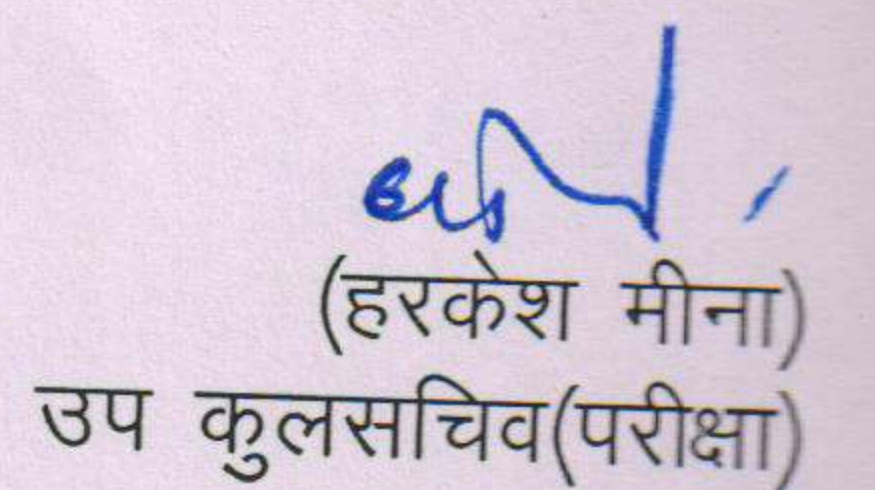 (हरकेश मीना)
उप कुलसचिव(परीक्षा)